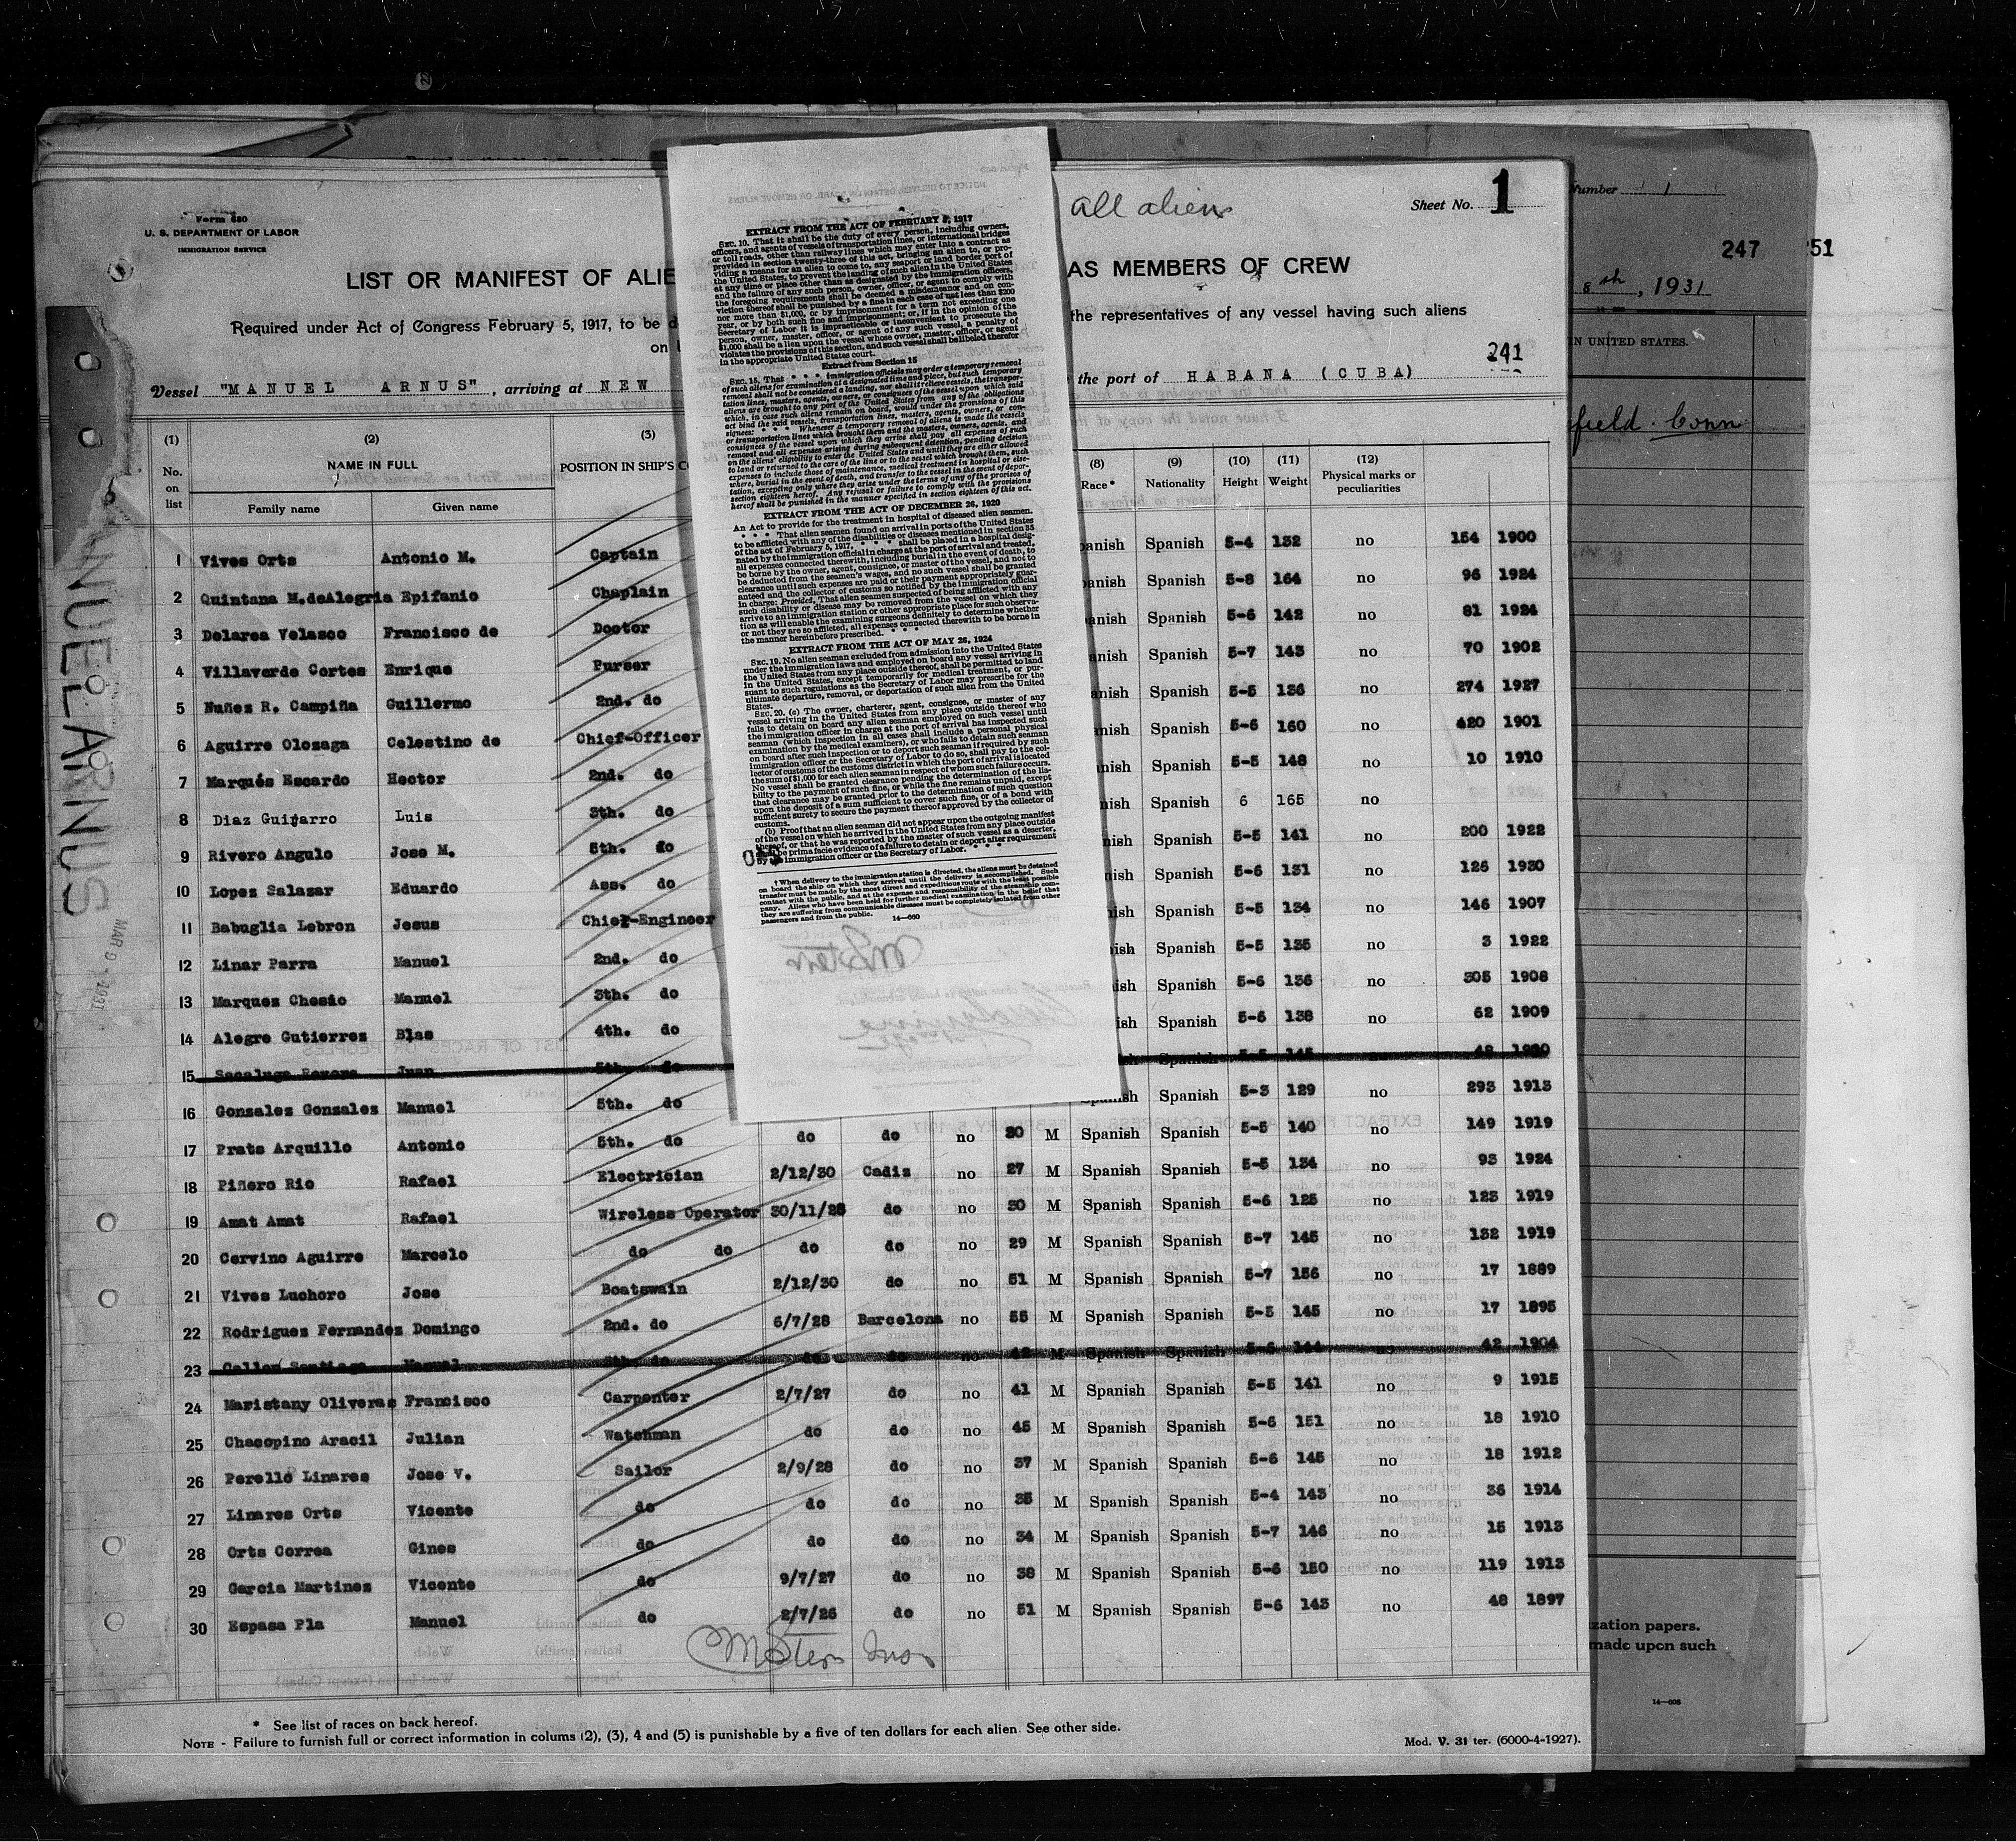 all aliens
Sheet No. 1
Form 680
U. S. DEPARTMENT OF LABOR
IMMIGRATION SERVICE
LIST OR MANIFEST OF ALIE
AS MEMBERS OF CREW
Required under Act of Congress February 5, 1917, to be d
the representatives of any vessel having such aliens
on
241
Vessel "MANUEL ARNUS", arriving at NEW
the port of HABANA (CUBA)
(1) (2) (3) (8) (9) (10) (11) (12)
No. on list NAME IN FULL POSITION IN SHIP'S C Race* Nationality Height Weight Physical marks or peculiarities
Family name Given name
1 Vives Orts Antonio M. Captain anish Spanish 5-4 132 no 154 1900
2 Quintana M.deAlegria Epifanio Chaplain anish Spanish 5-8 164 no 96 1924
3 Delarea Velasco Francisco de Doctor anish Spanish 5-6 142 no 81 1924
4 Villaverde Cortes Enrique Purser anish Spanish 5-7 143 no 70 1902
5 Nuñez R. Campiña Guillermo 2nd. do anish Spanish 5-5 136 no 274 1927
6 Aguirre Olozaga Celestino de Chief-Officer nish Spanish 5-6 160 no 420 1901
7 Marqués Escardo Hector 2nd. do nish Spanish 5-5 148 no 10 1910
8 Diaz Guijarro Luis 3th. do nish Spanish 6 165 no
9 Rivero Angulo Jose M. 5th. do nish Spanish 5-5 141 no 200 1922
10 Lopez Salazar Eduardo Ass. do nish Spanish 5-6 131 no 126 1930
11 Babuglia Lebron Jesus Chief-Engineer ish Spanish 5-5 134 no 146 1907
12 Linar Parra Manuel 2nd. do ish Spanish 5-5 135 no 3 1922
13 Marques Chesio Manuel 3th. do ish Spanish 5-6 136 no 305 1908
14 Alegre Gutierres Blas 4th. do ish Spanish 5-6 138 no 62 1909
15 Juan 5th. do
16 Gonzales Gonzales Manuel 5th. do Spanish 5-3 129 no 293 1913
17 Prats Arquillo Antonio 5th. do do do no 30 M Spanish Spanish 5-5 140 no 149 1919
18 Piñero Rio Rafael Electrician 2/12/30 Cadiz no 27 M Spanish Spanish 5-5 134 no 93 1924
19 Amat Amat Rafael Wireless Operator 30/11/28 do no 30 M Spanish Spanish 5-6 125 no 123 1919
20 Cervino Aguirre Marcelo do do do do no 29 M Spanish Spanish 5-7 145 no 132 1919
21 Vives Luchoro Jose Boatswain 2/12/30 do no 51 M Spanish Spanish 5-7 156 no 17 1889
22 Rodrigues Fernandez Domingo 2nd. do 6/7/28 Barcelona no 55 M Spanish Spanish 5-5 145 no 17 1895
23 Manuel do do no 42 M Spanish Spanish 5-6 144 no 42 1904
24 Maristany Oliveras Francisco Carpenter 2/7/27 do no 41 M Spanish Spanish 5-5 141 no 9 1915
25 Chacopino Aracil Julian Watchman do do no 45 M Spanish Spanish 5-6 151 no 18 1910
26 Perelló Linares Jose V. Sailor 2/9/28 do no 37 M Spanish Spanish 5-6 145 no 18 1912
27 Linares Orts Vicente do do do no 35 M Spanish Spanish 5-4 143 no 36 1914
28 Orts Correa Gines do do do no 34 M Spanish Spanish 5-7 146 no 15 1913
29 Garcia Martinez Vicente do 9/7/27 do no 38 M Spanish Spanish 5-6 150 no 119 1913
30 Espasa Pla Manuel do 2/7/26 do no 51 M Spanish Spanish 5-6 143 no 48 1897
* See list of races on back hereof.
NOTE - Failure to furnish full or correct information in colums (2), (3), 4 and (5) is punishable by a five of ten dollars for each alien. See other side.
Mod. V. 31 ter. (6000-4-1927).
MANUEL ARNUS
MAR 9 1931
EXTRACT FROM THE ACT OF FEBRUARY 5, 1917
SEC. 10. That it shall be the duty of every person, including owners,
officers, and agents of vessels of transportation lines, or international bridges
or toll roads, other than railway lines which may enter into a contract as
provided in section twenty-three of this act, bringing an alien to, or pro-
viding a means for an alien to come to, any seaport or land border port of
the United States, to prevent the landing of such alien in the United States
at any time or place other than as designated by the immigration officers,
and the failure of any such person, owner, officer, or agent to comply with
the foregoing requirements shall be deemed a misdemeanor and on con-
viction thereof shall be punished by a fine in each case of not less than $200
nor more than $1,000, or by imprisonment for a term not exceeding one
year, or by both such fine and imprisonment; or, if in the opinion of the
Secretary of Labor it is impracticable or inconvenient to prosecute the
person, owner, master, officer, or agent of any such vessel, a penalty of
$1,000 shall be a lien upon the vessel whose owner, master, officer, or agent
violates the provisions of this section, and such vessel shall be libeled therefor
in the appropriate United States court.
Extract from Section 15
SEC. 15. That * * * immigration officials may order a temporary removal
of such aliens for examination at a designated time and place, but such temporary
removal shall not be considered a landing, nor shall it relieve vessels, the transpor-
tation lines, masters, agents, owners, or consignees of the vessel upon which said
aliens are brought to any port of the United States from any of the obligations
which, in case such aliens remain on board, would under the provisions of this
act bind the said vessels, transportation lines, masters, agents, owners, or con-
signees: * * * Whenever a temporary removal of aliens is made the vessels
or transportation lines which brought them and the masters, owners, agents, and
consignees of the vessel upon which they arrive shall pay all expenses of such
removal and all expenses arising during subsequent detention, pending decision
on the aliens' eligibility to enter the United States and until they are either allowed
to land or returned to the care of the line or to the vessel which brought them, such
expenses to include those of maintenance, medical treatment in hospital or else-
where, burial in the event of death, and transfer to the vessel in the event of depor-
tation, excepting only where they arise under the terms of any of the provisos of
section eighteen hereof. Any refusal or failure to comply with the provisions
hereof shall be punished in the manner specified in section eighteen of this act.
EXTRACT FROM THE ACT OF DECEMBER 26, 1920
An Act to provide for the treatment in hospital of diseased alien seamen.
* * * That alien seamen found on arrival in ports of the United States
to be afflicted with any of the disabilities or diseases mentioned in section 35
of the act of February 5, 1917, * * * shall be placed in a hospital desig-
nated by the immigration official in charge at the port of arrival and treated,
all expenses connected therewith, including burial in the event of death, to
be borne by the owner, agent, consignee, or master of the vessel, and not to
be deducted from the seamen's wages, and no such vessel shall be granted
clearance until such expenses are paid or their payment appropriately guar-
anteed and the collector of customs so notified by the immigration official
in charge: Provided, That alien seamen suspected of being afflicted with any
such disability or disease may be removed from the vessel on which they
arrive to an immigration station or other appropriate place for such observa-
tion as will enable the examining surgeons definitely to determine whether
or not they are so afflicted, all expenses connected therewith to be borne in
the manner hereinbefore prescribed. * * *
EXTRACT FROM THE ACT OF MAY 26, 1924
SEC. 19. No alien seaman excluded from admission into the United States
under the immigration laws and employed on board any vessel arriving in
the United States from any place outside thereof, shall be permitted to land
in the United States, except temporarily for medical treatment, or pur-
suant to such regulations as the Secretary of Labor may prescribe for the
ultimate departure, removal, or deportation of such alien from the United
States.
SEC. 20. (a) The owner, charterer, agent, consignee, or master of any
vessel arriving in the United States from any place outside thereof who
fails to detain on board any alien seaman employed on such vessel until
the immigration officer in charge at the port of arrival has inspected such
seaman (which inspection in all cases shall include a personal physical
examination by the medical examiners), or who fails to detain such seaman
on board after such inspection or to deport such seaman if required by such
immigration officer or the Secretary of Labor to do so, shall pay to the col-
lector of customs of the customs district in which the port of arrival is located
the sum of $1,000 for each alien seaman in respect of whom such failure occurs.
No vessel shall be granted clearance pending the determination of the lia-
bility to the payment of such fine, or while the fine remains unpaid, except
that clearance may be granted prior to the determination of such question
upon the deposit of a sum sufficient to cover such fine, or of a bond with
sufficient surety to secure the payment thereof approved by the collector of
customs.
(b) Proof that an alien seaman did not appear upon the outgoing manifest
of the vessel on which he arrived in the United States from any place outside
thereof, or that he was reported by the master of such vessel as a deserter,
shall be prima facie evidence of a failure to detain or deport after requirement
by the immigration officer or the Secretary of Labor. * * *
† When delivery to the immigration station is directed, the aliens must be detained
on board the ship on which they arrived until the delivery is accomplished. Such
transfer must be made by the most direct and expeditious route with the least possible
contact with the public, and at the expense and responsibility of the steamship com-
pany. Aliens who have been held for further medical examination in the belief that
they are suffering from communicable diseases must be completely isolated from other
passengers and from the public. 14—660
Number 1
247
251
8th, 1931
IN UNITED STATES.
field. Conn
zation papers.
made upon such
14—608